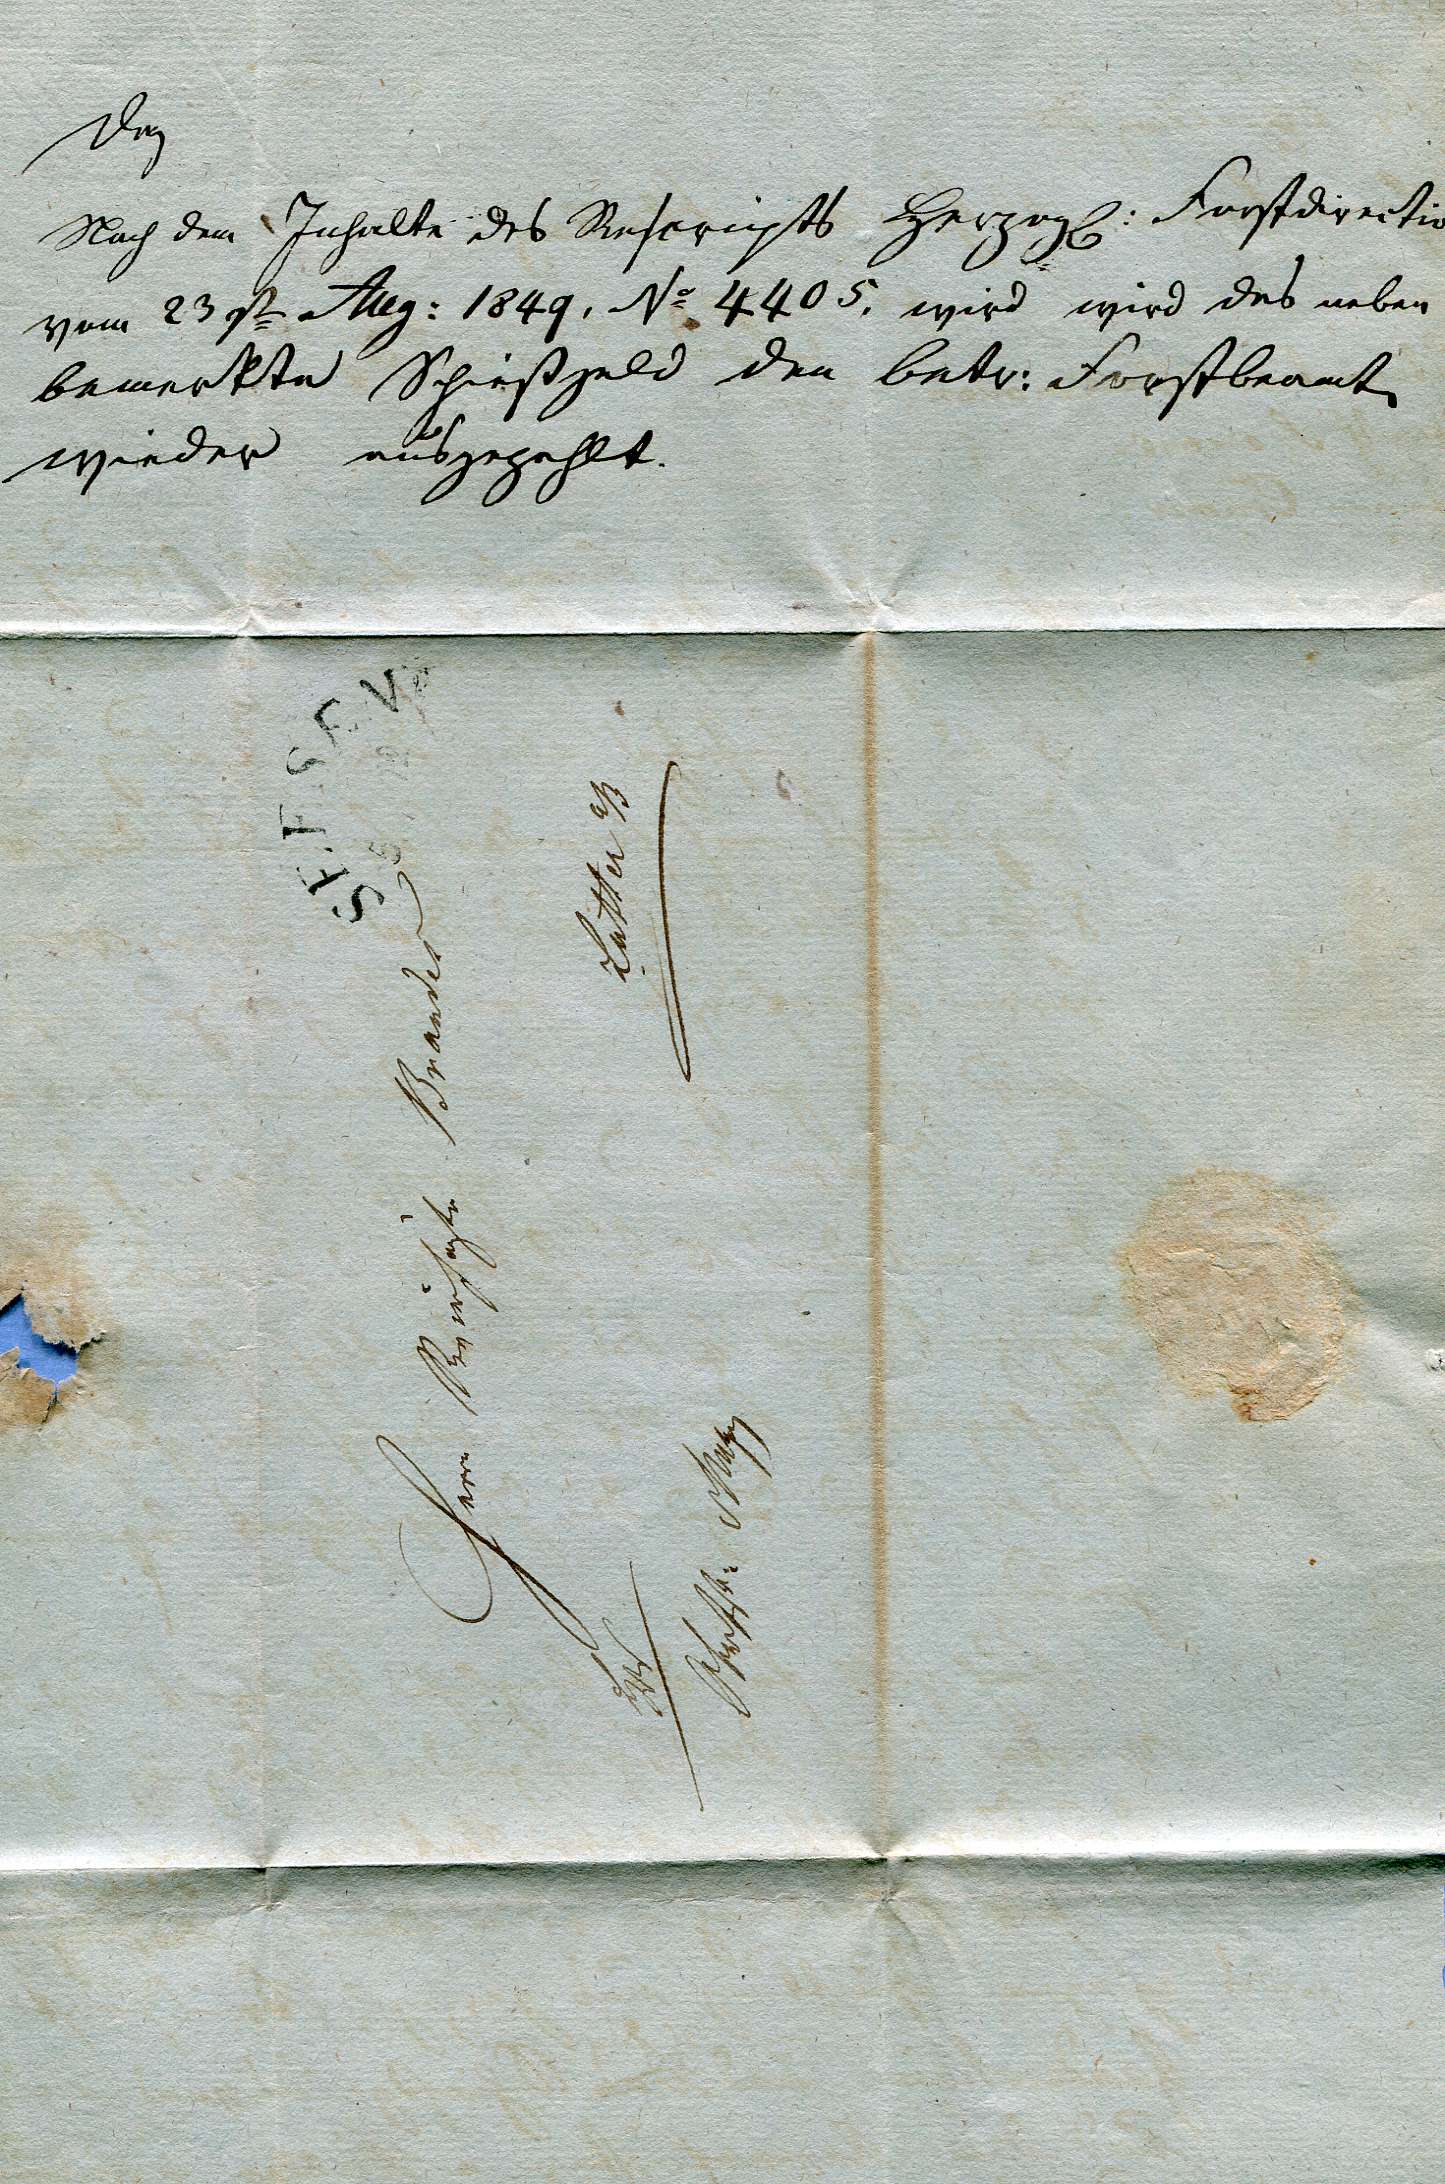 Nach dem Inhalte des Rescripts Herzogl: Forstdirectio
vom 23st Aug: 1849, No 4405. wird wird das neben
bemerkte Schießgeld den betr: Forstbeamt
wieder ausgezahlt.
SEESEN
Herrn Revierjäger Brandes
Lutter a/B